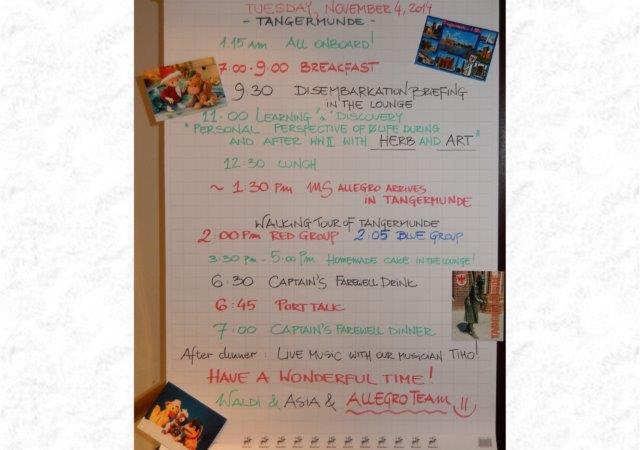 TUESDAY, NOVEMBER 4, 2014
- TANGERMUNDE -
1.15 am ALL ONBOARD!
7:00 - 9:00 BREAKFAST
9:30 DISEMBARKATION BRIEFING
IN THE LOUNGE
11:00 LEARNING 'n' DISCOVERY
"PERSONAL PERSPECTIVE OF LIFE DURING
AND AFTER WWII WITH HERB AND ART"
12:30 LUNCH
~ 1:30 PM MS ALLEGRO ARRIVES
IN TANGERMUNDE
WALKING TOUR OF TANGERMUNDE
2:00 PM RED GROUP 2:05 BLUE GROUP
3:30 PM - 5:00 PM HOMEMADE CAKE IN THE LOUNGE!
6:30 CAPTAIN'S FAREWELL DRINK
6:45 PORT TALK
7:00 CAPTAIN'S FAREWELL DINNER
After dinner: LIVE MUSIC WITH OUR MUSICIAN TIHO!
HAVE A WONDERFUL TIME!
WALDI & ASIA & ALLEGRO TEAM